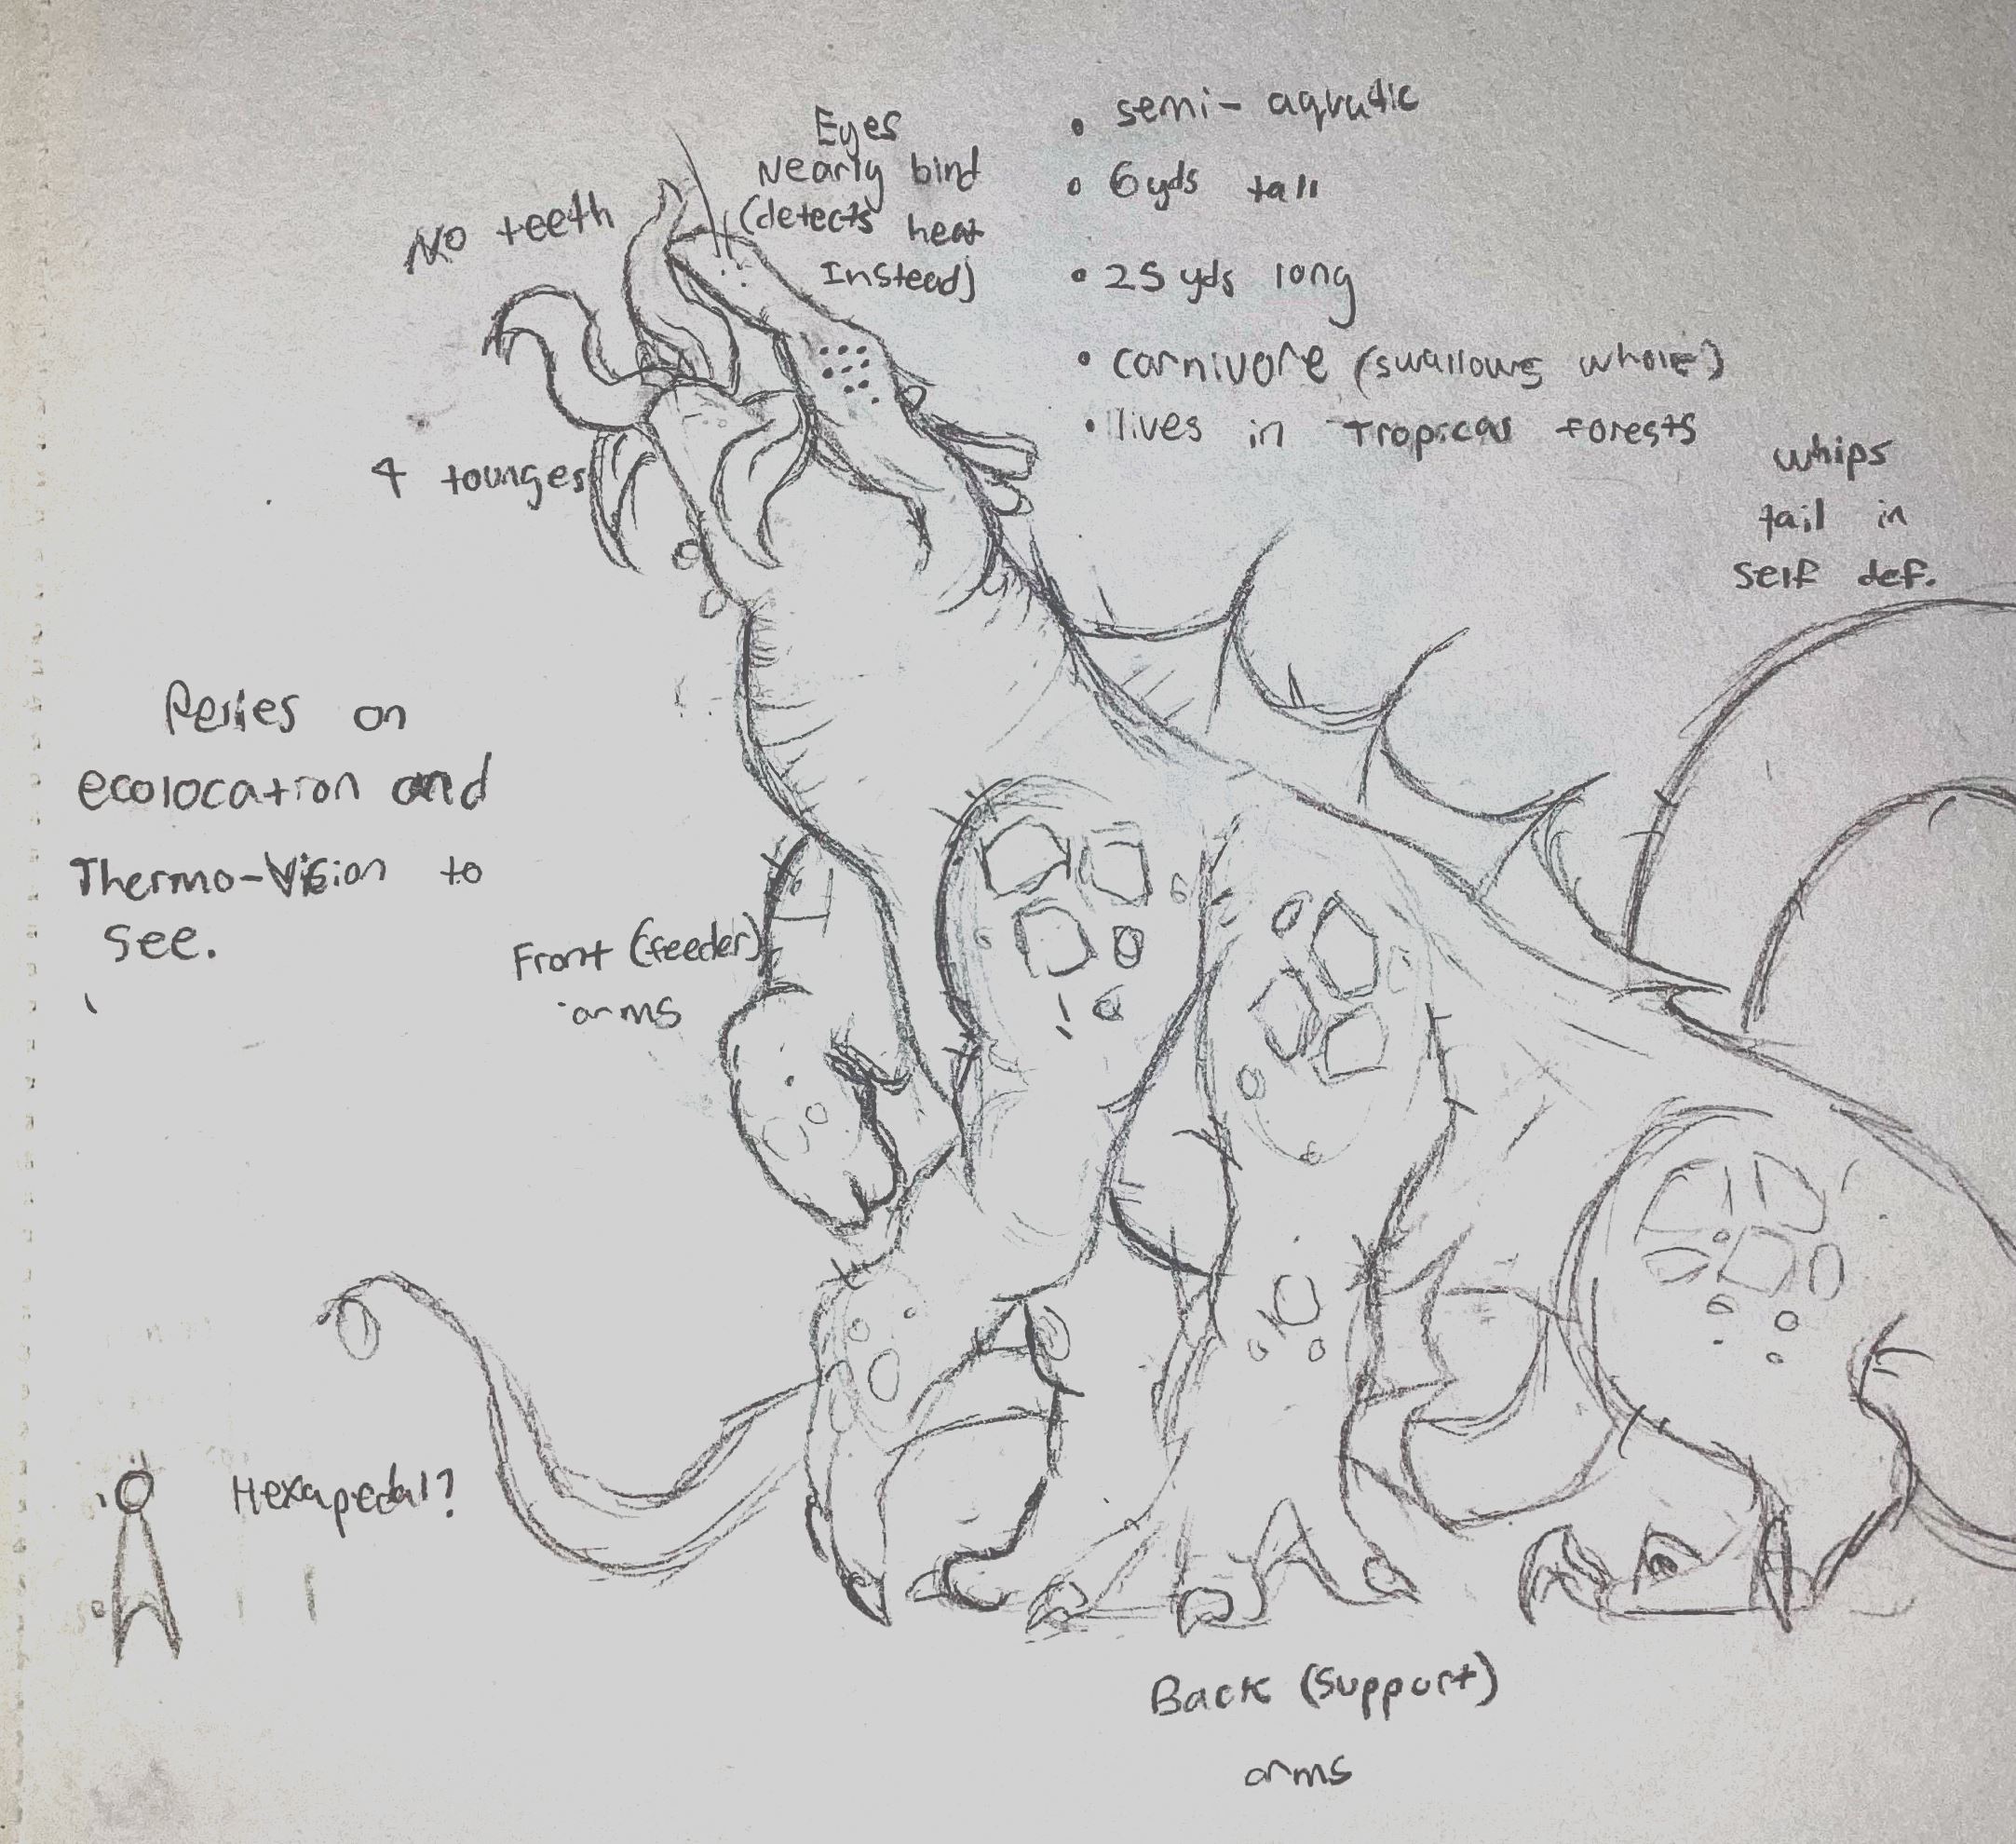 No teeth
Eyes
Nearly bind
(detects heat
Instead)
• semi- aquatic
• 6yds tall
• 25 yds long
• carnivore (swallows whole)
• lives in Tropical forests
whips
tail in
self def.
4 tounges
Relies on
ecolocation and
Thermo-Vision to
see.
Front (feeder)
arms
Hexapedal?
Back (support)
arms